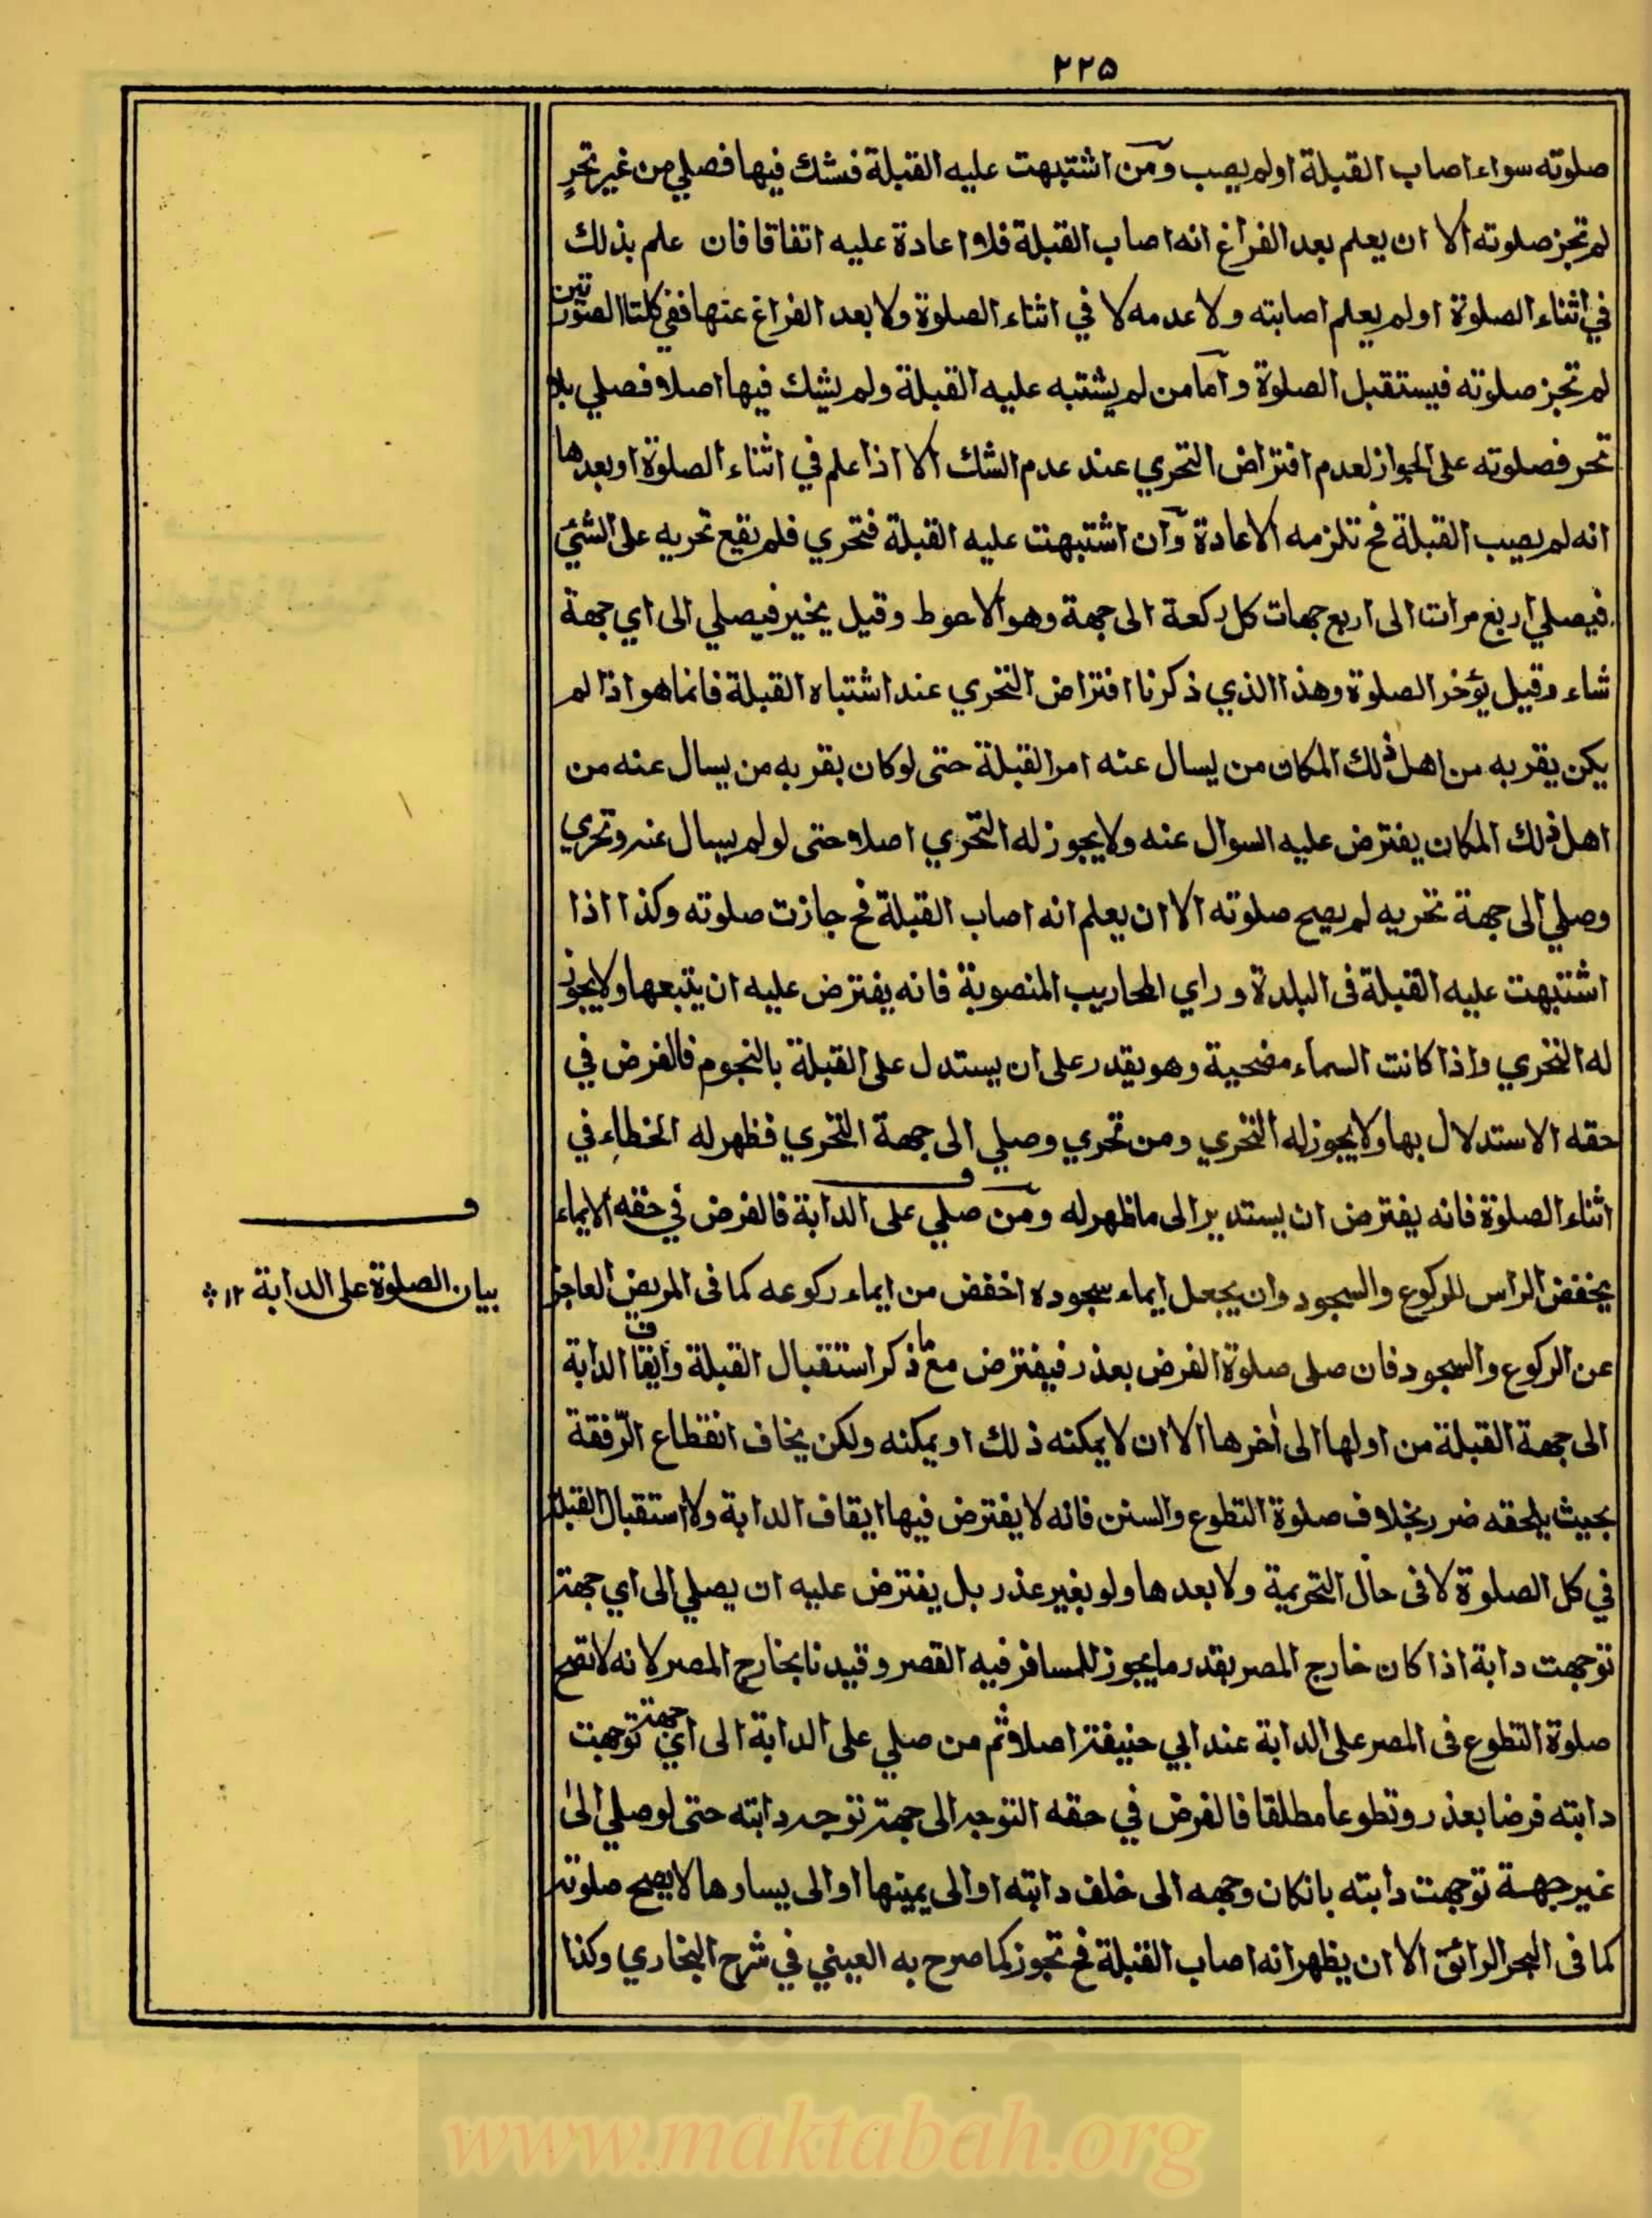 ٢٢٥
صلوته سواء اصاب القبلة اولم يصب ومن اشتبهت عليه القبلة فشك فيها فصلي من غير تحرٍ
لم تجز صلوته الا ان يعلم بعد الفراغ انه اصاب القبلة فلا اعادة عليه اتفاقا فان علم بذلك
في اثناء الصلوة اولم يعلم اصابته ولا عدمه لا في اثناء الصلوة ولا بعد الفراغ عنها ففي كلتا الصورتين
لم تجز صلوته فيستقبل الصلوة واما من لم يشتبه عليه القبلة ولم يشك فيها اصلا فصلي بلا
تحر فصلوته على الجواز لعدم افتراض التحري عند عدم الشك الا اذا علم في اثناء الصلوة او بعدها
انه لم يصيب القبلة فح تلزمه الاعادة وان اشتبهت عليه القبلة فتحري فلم يقع تحريه على الشئ
فيصلي اربع مرات الى اربع جهات كل ركعة الى جهة وهو الاحوط وقيل يخير فيصلي الى اي جهة
شاء وقيل يؤخر الصلوة وهذا الذي ذكرنا افتراض التحري عند اشتباه القبلة فانما هو اذا لم
يكن يقربه من اهل ذلك المكان من يسال عنه امر القبلة حتى لو كان بقربه من يسال عنه من
اهل ذلك المكان يفترض عليه السوال عنه ولا يجوز له التحري اصلا حتى لو لم يسال عنه وتحري
وصلي الى جهة تحريه لم يصح صلوته الا ان يعلم انه اصاب القبلة فح جازت صلوته وكذا اذا
اشتبهت عليه القبلة فى البلدة و راي المحاريب المنصوبة فانه يفترض عليه ان يتبعها ولا يجوز
له التحري واذا كانت السماء مضحية وهو يقدر على ان يستدل على القبلة بالنجوم فالفرض في
حقه الاستدلال بها ولا يجوز له التحري ومن تحري وصلي الى جهة التحري فظهر له الخطاء في
اثناء الصلوة فانه يفترض ان يستدير الى ما ظهر له ومن صلي على الدابة فالفرض في حقه الايماء
يخفض الراس للركوع والسجود وان يجعل ايماء سجوده اخفض من ايماء ركوعه كما فى المريض العاجز
بيان الصلوة على الدابة ١٢
عن الركوع والسجود فان صلى صلوة الفرض بعذر فيفترض مع ما ذكر استقبال القبلة وايقاف الدابة
الى جهة القبلة من اولها الى اخرها الا ان لا يمكنه ذلك او يمكنه ولكن يخاف انقطاع الرفقة
بحيث يلحقه ضرر بخلاف صلوة التطوع والسنن فانه لا يفترض فيها ايقاف الدابة ولا استقبال القبلة
في كل الصلوة لا فى حال التحريمة ولا بعدها ولو بغير عذر بل يفترض عليه ان يصلي الى اي جهة
توجهت دابة اذا كان خارج المصر بقدر ما يجوز للمسافر فيه القصر وقيدنا بخارج المصر لانه لا تصح
صلوة التطوع فى المصر على الدابة عند ابي حنيفة اصلا ثم من صلي على الدابة الى اي جهة توجهت
دابته فرضا بعذر وتطوعا مطلقا فالفرض في حقه التوجه الى جهة توجه دابته حتى لو صلي الى
غير جهة توجهت دابته بانكان وجهه الى خلف دابته او الى يمينها او الى يسارها لا يصح صلوته
كما فى البحر الرائق الا ان يظهر انه اصاب القبلة فح تجوز كما صرح به العيني في شرح البخاري وكذا
www.maktabah.org